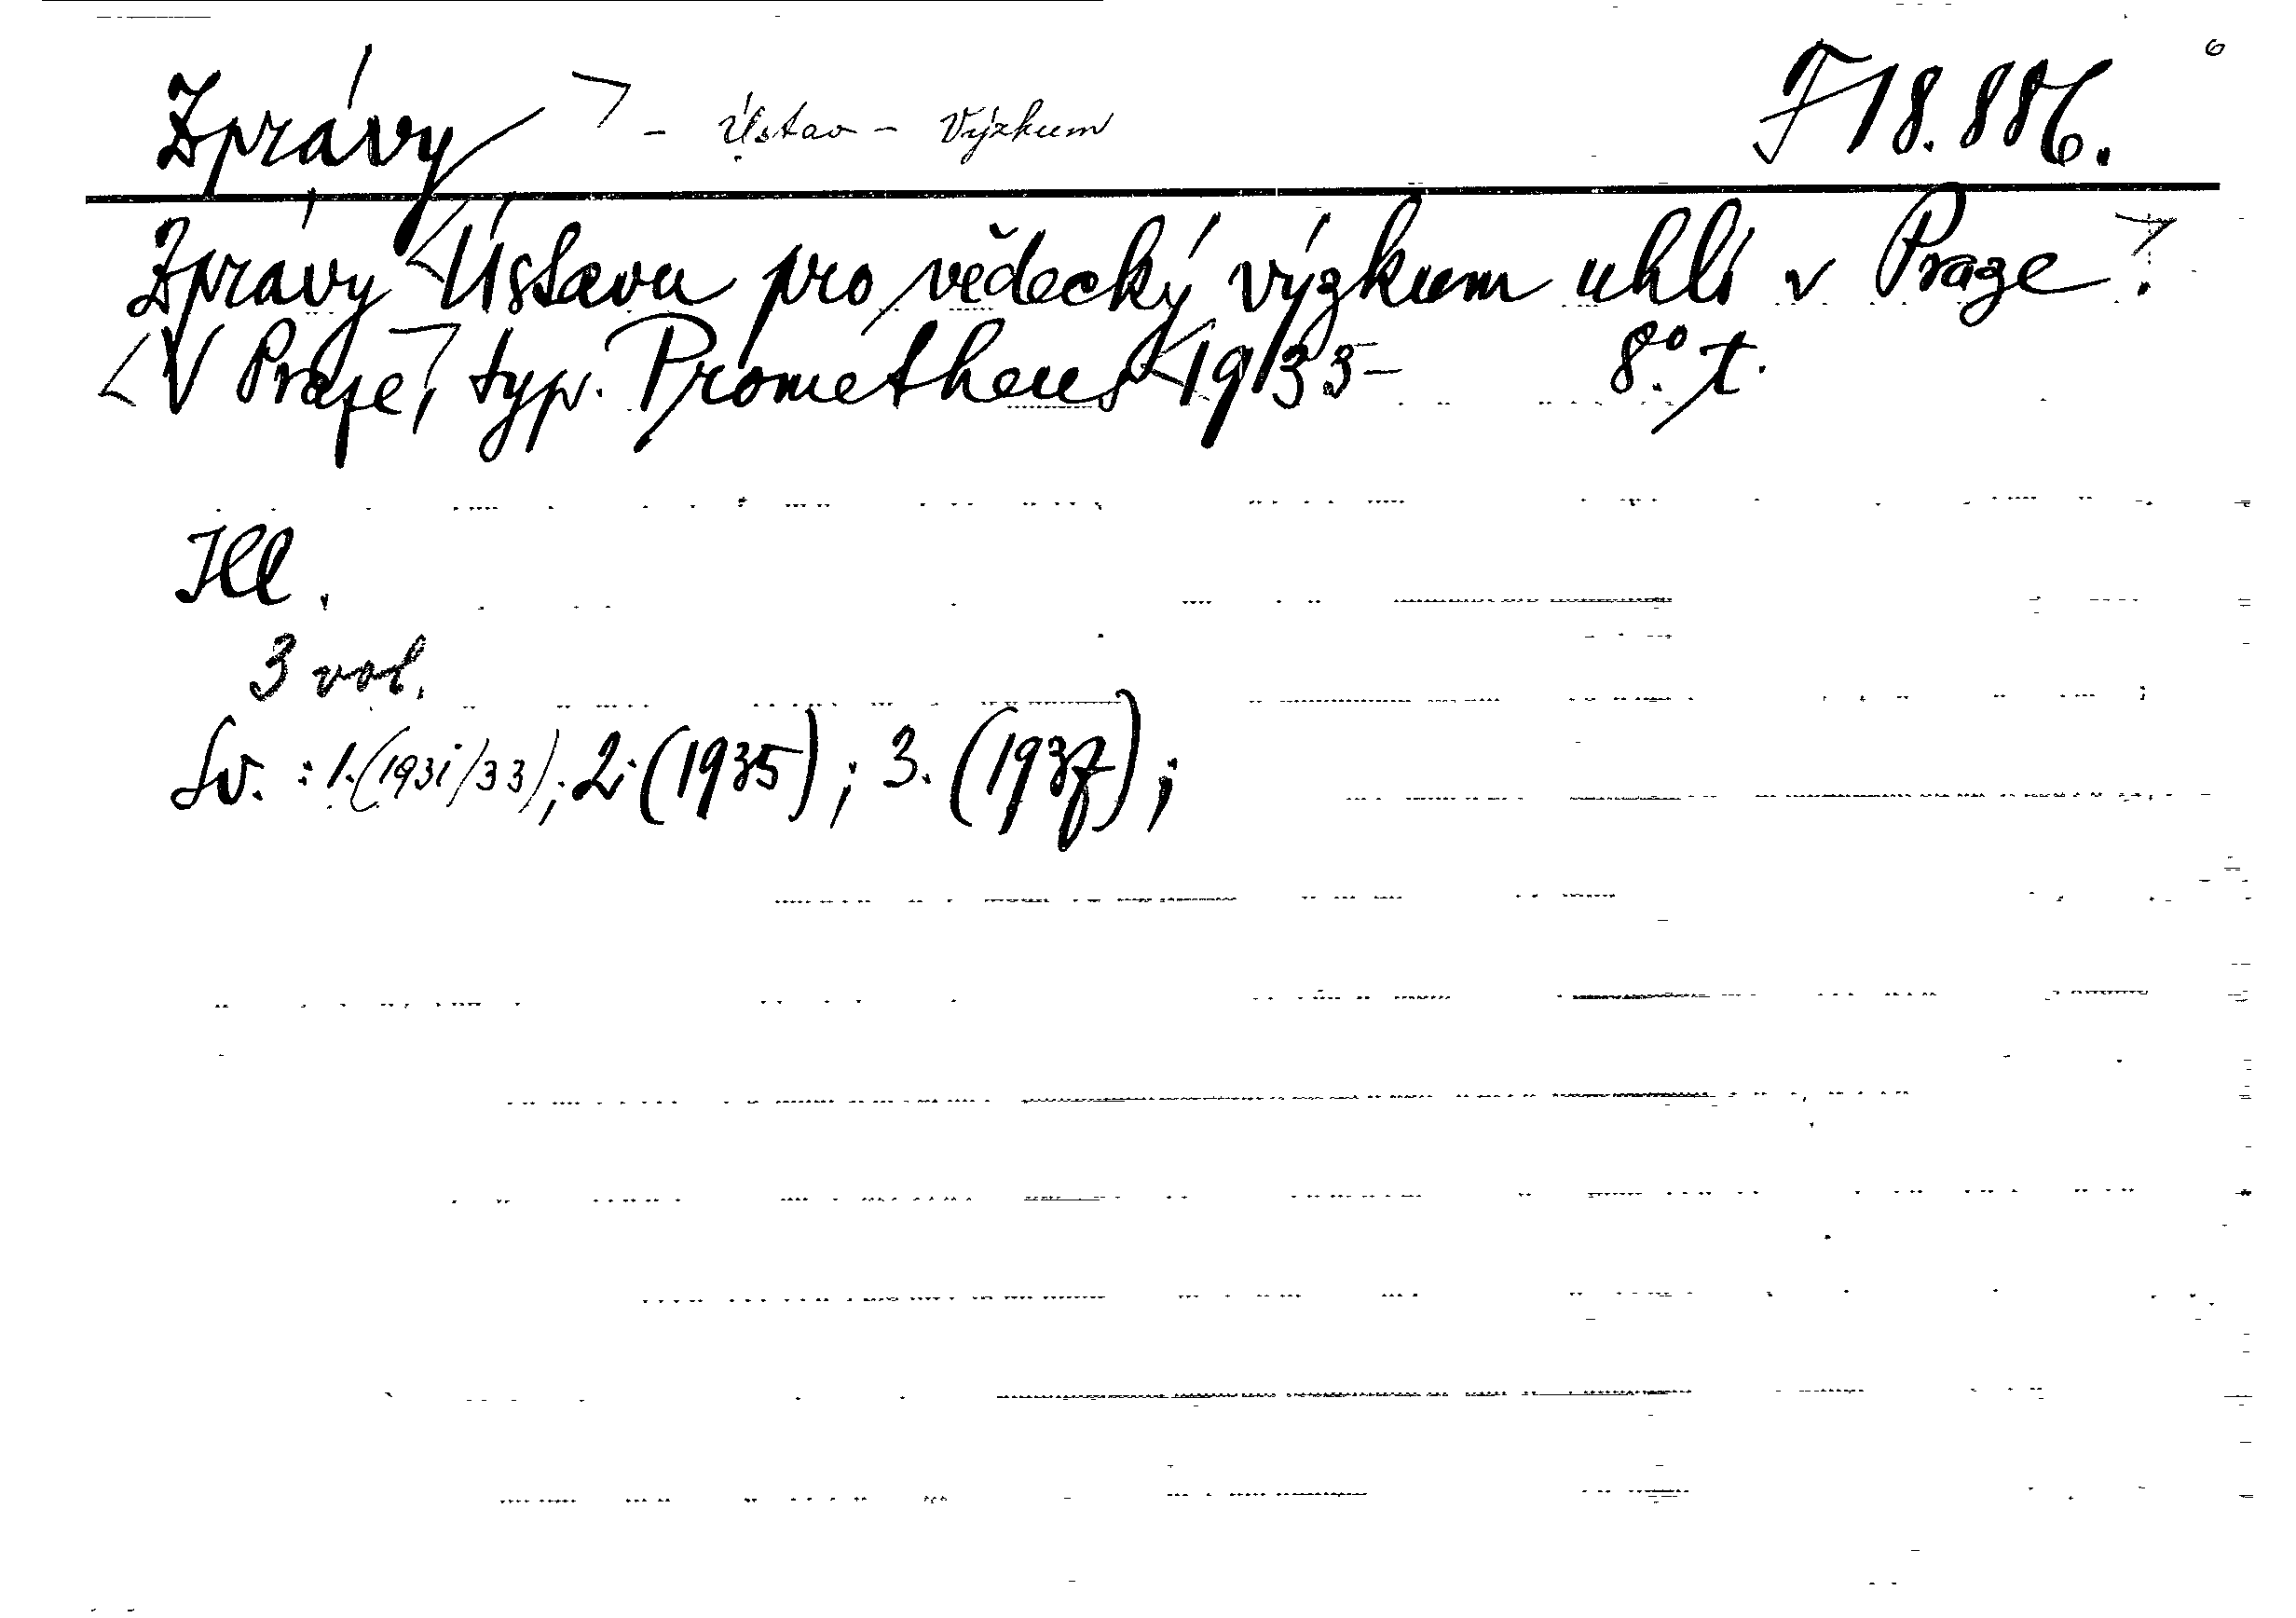 Zprávy ⌝ - Ústav - Výzkum F 18.886. 6
Zprávy <Ústavu pro vědecký výzkum uhlí v Praze⌝.
<V Praze⌝, typ. Prométheus <1933- 8°. t.
Ill.
3 vol.
Sv. : 1.(1931/33); 2. (1935); 3. (1937);